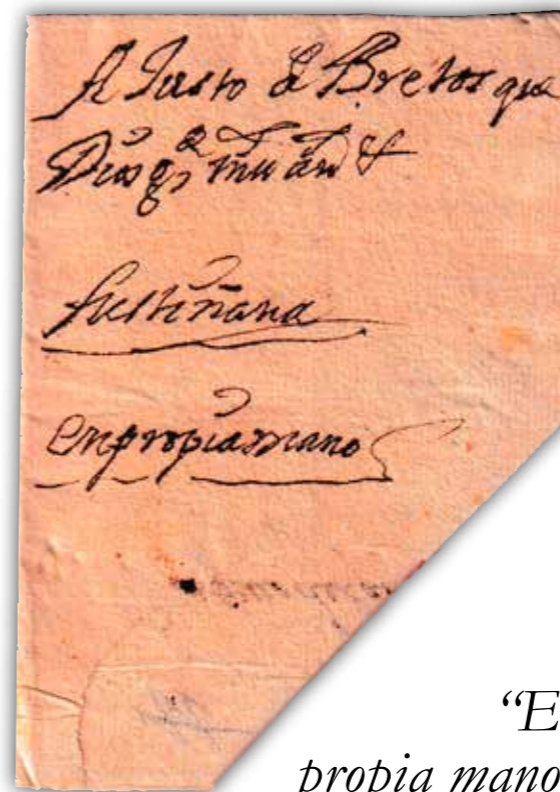 A Justo de Bretos que
Dios g^e mu an^s
fustiñana
en propia mano
“E
propia mano